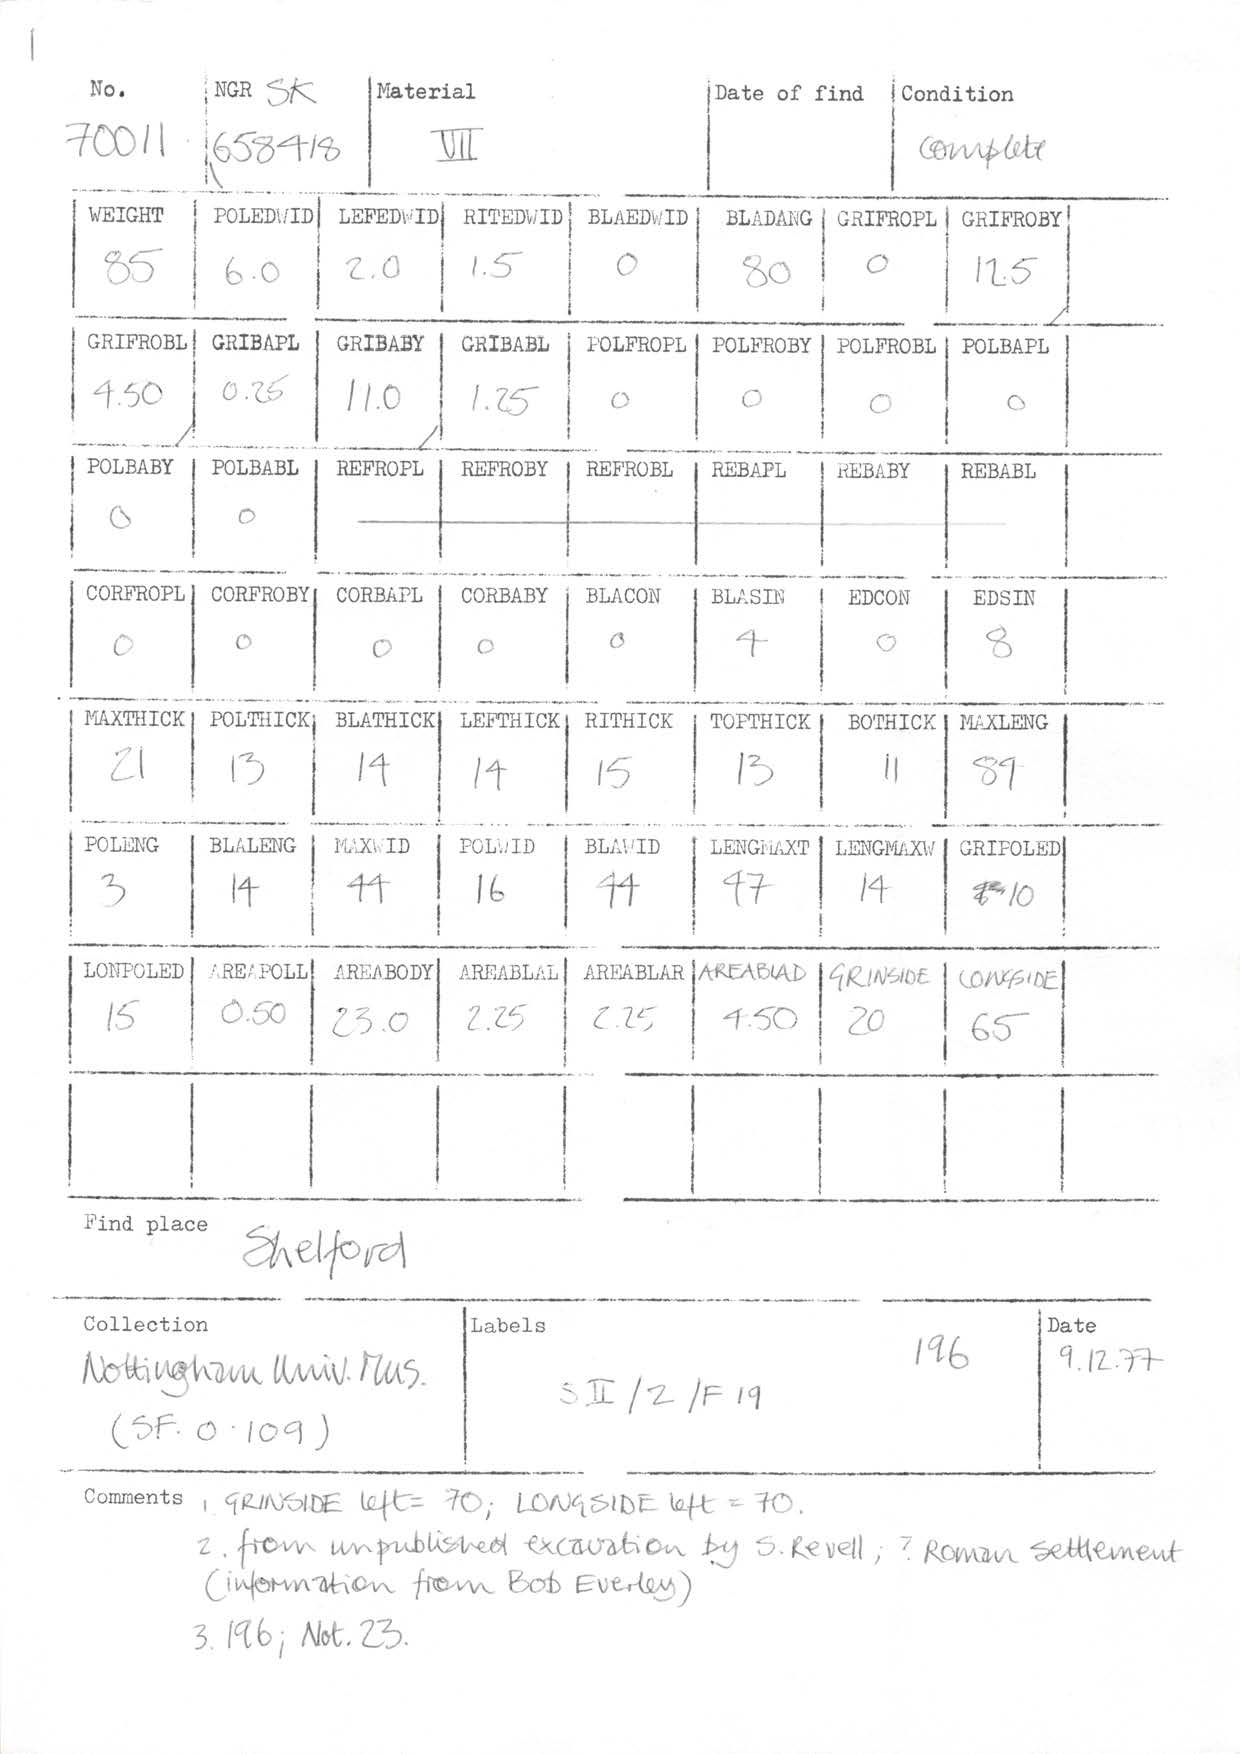 No. NGR SK Material Date of find Condition
70011 658418 VII complete
WEIGHT POLEDWID LEFEDWID RITEDWID BLAEDWID BLADANG GRIFROPL GRIFROBY
85 6.0 2.0 1.5 0 80 0 12.5
GRIFROBL GRIBAPL GRIBABY GRIBABL POLFROPL POLFROBY POLFROBL POLBAPL
4.50 0.25 11.0 1.25 0 0 0 0
POLBABY POLBABL REFROPL REFROBY REFROBL REBAPL REBABY REBABL
0 0
CORFROPL CORFROBY CORBAPL CORBABY BLACON BLASIN EDCON EDSIN
0 0 0 0 0 4 0 8
MAXTHICK POLTHICK BLATHICK LEFTHICK RITHICK TOPTHICK BOTHICK MAXLENG
21 13 14 14 15 13 11 89
POLENG BLALENG MAXWID POLWID BLAWID LENGMAXT LENGMAXW GRIPOLED
3 14 44 16 44 47 14 10
LONPOLED AREAPOLL AREABODY AREABLAL AREABLAR AREABLAD GRINSIDE LONGSIDE
15 0.50 23.0 2.25 2.25 4.50 20 65
Find place Shelford
Collection Labels 196 Date
Nottingham Univ. Mus. 9.12.77
(SF. 0.109) S II / 2 / F 19
Comments 1. GRINSIDE left = 70; LONGSIDE left = 70.
2. from unpublished excavation by S. Revell; ? Roman settlement
(information from Bob Everley)
3. 196; Not. 23.